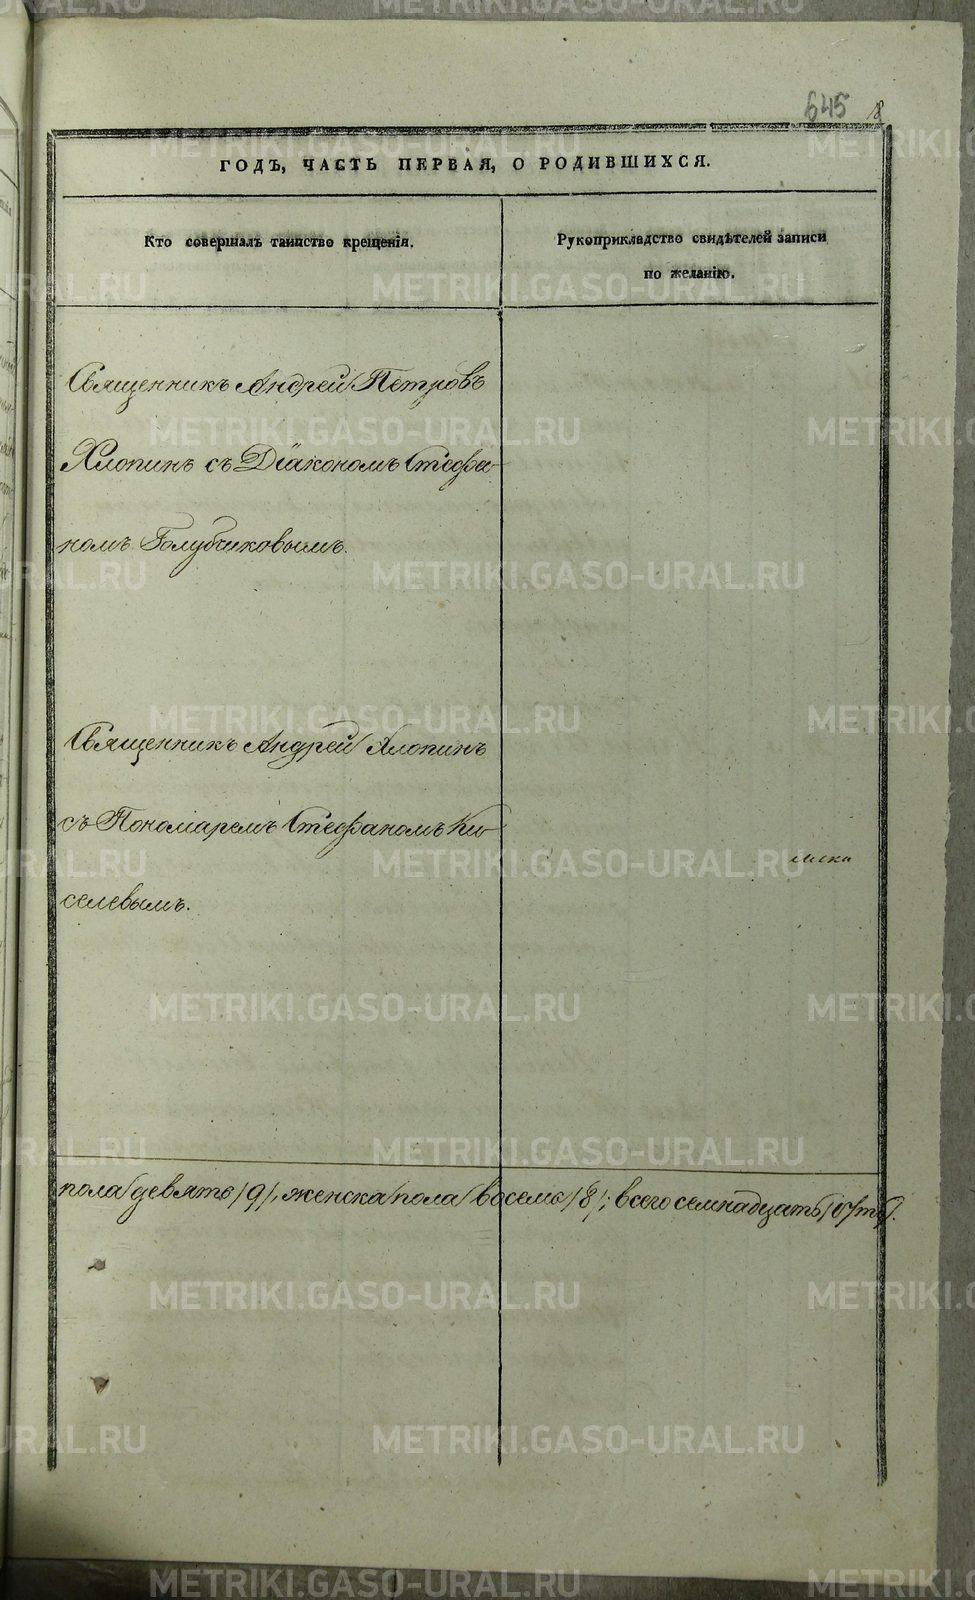 645 18
ГОДЪ, ЧАСТЬ ПЕРВАЯ, О РОДИВШИХСЯ.
Кто совершалъ таинство крещенія.
Рукоприкладство свидѣтелей записи
по желанію.
Священникъ Андрей Петровъ
Хлопинъ съ Діакономъ Стефа-
номъ Голубчиковымъ.
Священникъ Андрей Хлопинъ
съ Пономаремъ Стефаномъ Ки-
селевымъ.
пола девять /9/, женска пола восемь /8/; всего семнадцать
METRIKI.GASO-URAL.RU